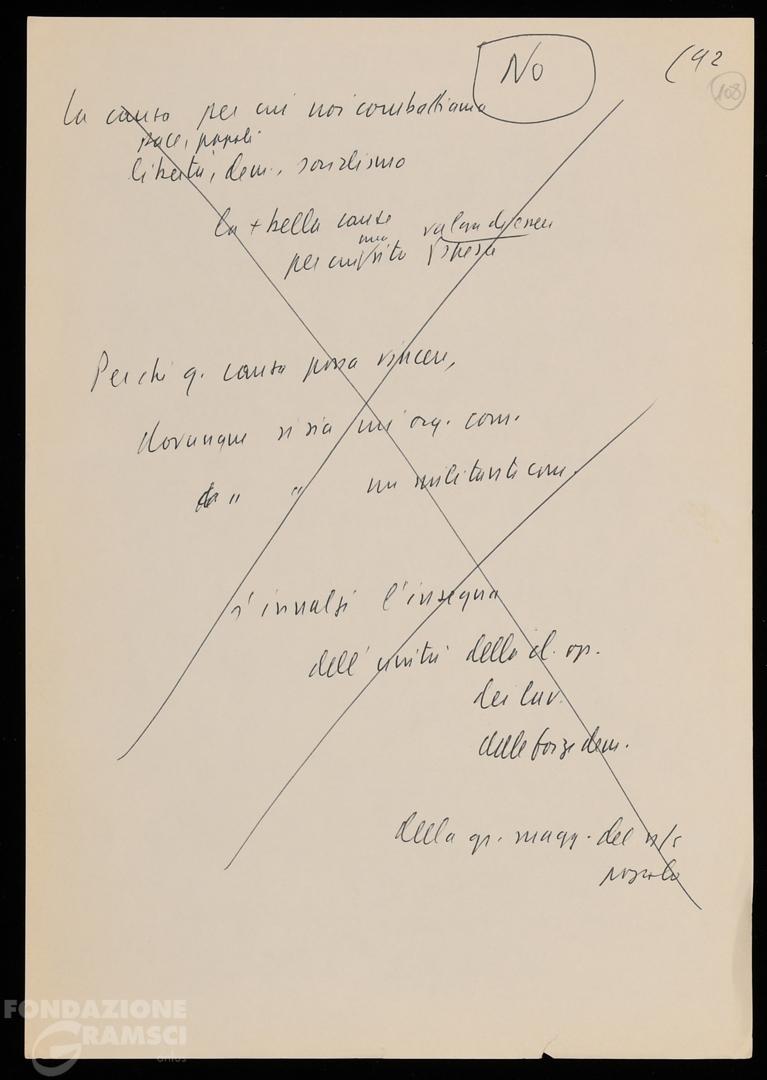 No
(42
108
La causa per cui noi combattiamo
pace, popoli
libertà, dem., socialismo
la + bella causa
per cui una vita valga di esser
spesa
Perché q. causa possa vincere,
dovunque vi sia un' org. com.
" " un militante com.
s'innalzi l'insegna
dell'unità della cl. op.
dei lav.
delle forze dem.
della gr. magg. del n/s
popolo
FONDAZIONE
GRAMSCI
onlus